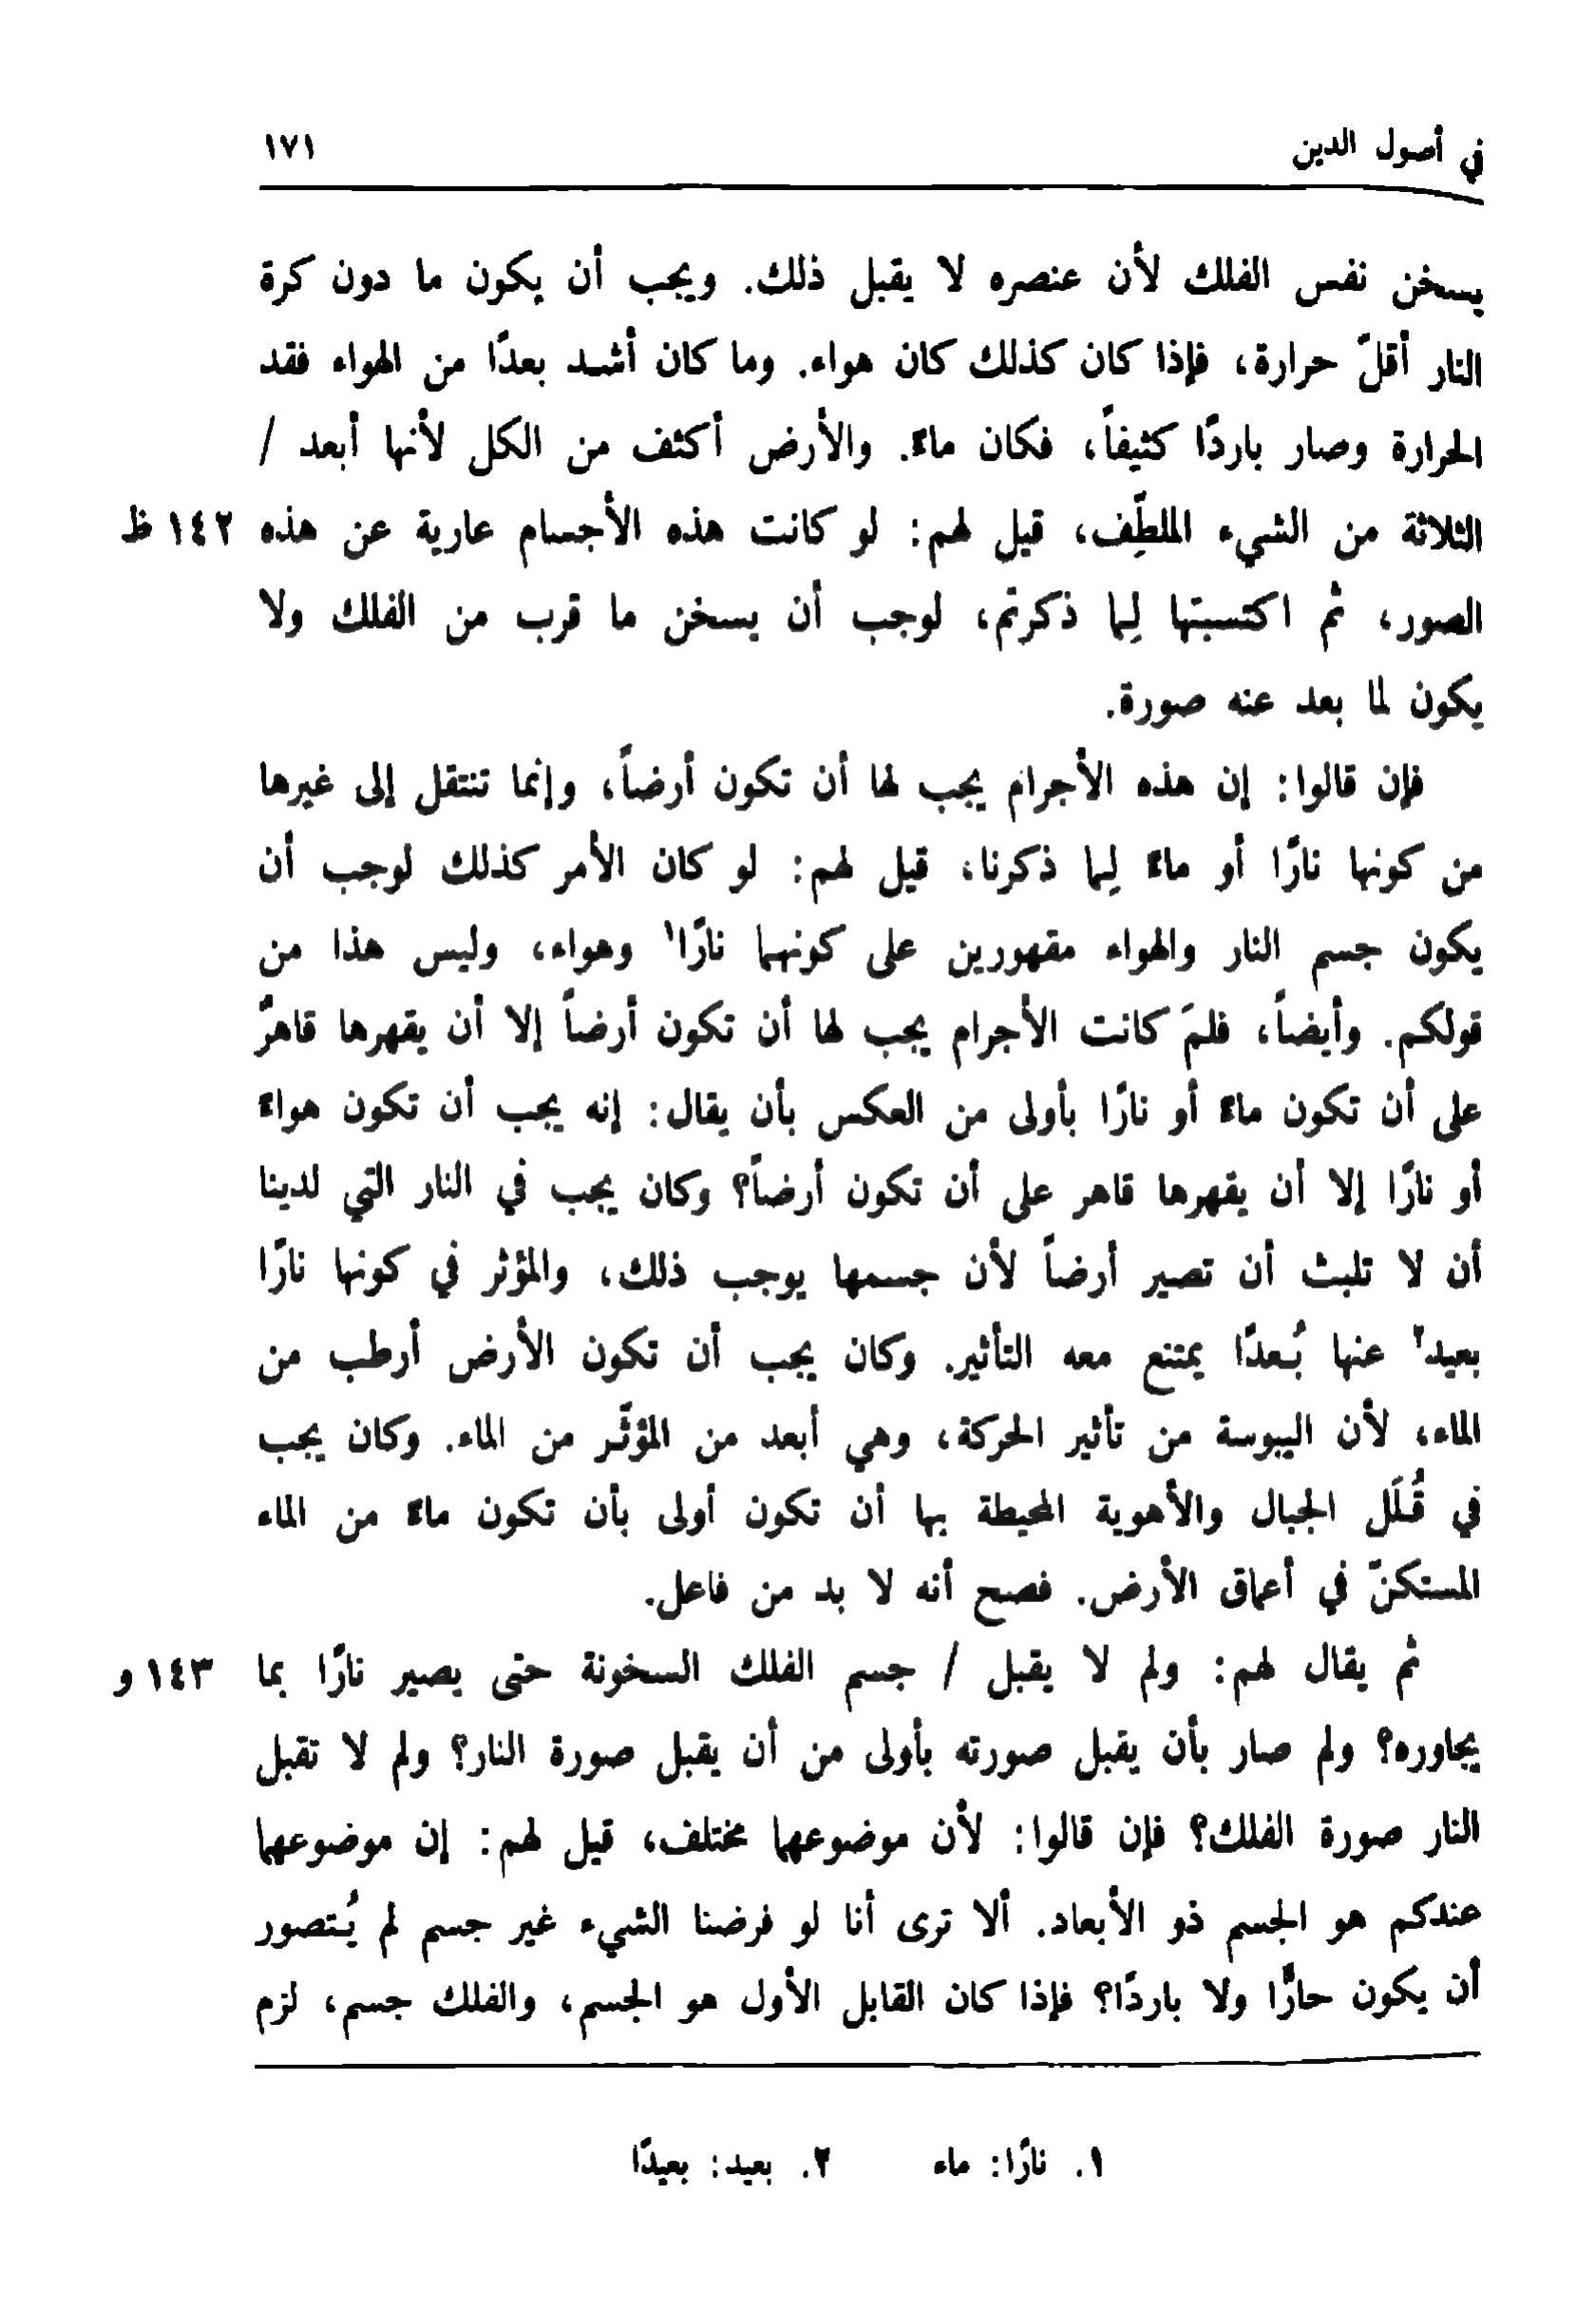 في أصول الدين ١٧١
يسخن نفس الفلك لأن عنصره لا يقبل ذلك. ويجب أن يكون ما دون كرة
النار أقلّ حرارة، فإذا كان كذلك كان هواء. وما كان أشد بعدًا من الهواء فقد
الحرارة وصار باردًا كثيفاً، فكان ماءً. والأرض أكثف من الكل لأنها أبعد /
الثلاثة من الشيء الملطِّف، قيل لهم: لو كانت هذه الأجسام عارية عن هذه ١٤٢ ظ
الصور، ثم اكتسبتها لِما ذكرتم، لوجب أن يسخن ما قرب من الفلك ولا
يكون لما بعد عنه صورة.
فإن قالوا: إن هذه الأجرام يجب لها أن تكون أرضاً، وإنما تنتقل إلى غيرها
من كونها نارًا أو ماءً لِما ذكرنا، قيل لهم: لو كان الأمر كذلك لوجب أن
يكون جسم النار والهواء مقهورين على كونهما نارًا١ وهواء، وليس هذا من
قولكم. وأيضاً، فلمَ كانت الأجرام يجب لها أن تكون أرضاً إلا أن يقهرها قاهرٌ
على أن تكون ماءً أو نارًا بأولى من العكس بأن يقال: إنه يجب أن تكون هواءً
أو نارًا إلا أن يقهرها قاهر على أن تكون أرضاً؟ وكان يجب في النار التي لدينا
أن لا تلبث أن تصير أرضاً لأن جسمها يوجب ذلك، والمؤثر في كونها نارًا
بعيد٢ عنها بُعدًا يمتنع معه التأثير. وكان يجب أن تكون الأرض أرطب من
الماء، لأن اليبوسة من تأثير الحركة، وهي أبعد من المؤثّر من الماء. وكان يجب
في قُلَل الجبال والأهوية المحيطة بها أن تكون أولى بأن تكون ماءً من الماء
المستكنّ في أعماق الأرض. فصح أنه لا بد من فاعل.
ثم يقال لهم: ولم لا يقبل / جسم الفلك السخونة حتى يصير نارًا بما ١٤٣ و
يجاوره؟ ولم صار بأن يقبل صورته بأولى من أن يقبل صورة النار؟ ولم لا تقبل
النار صورة الفلك؟ فإن قالوا: لأن موضوعهما مختلف، قيل لهم: إن موضوعهما
عندكم هو الجسم ذو الأبعاد. ألا ترى أنا لو فرضنا الشيء غير جسم لم يُتصور
أن يكون حارًّا ولا باردًا؟ فإذا كان القابل الأول هو الجسم، والفلك جسم، لزم
١. نارًا: ماء ٢. بعيد: بعيدًا